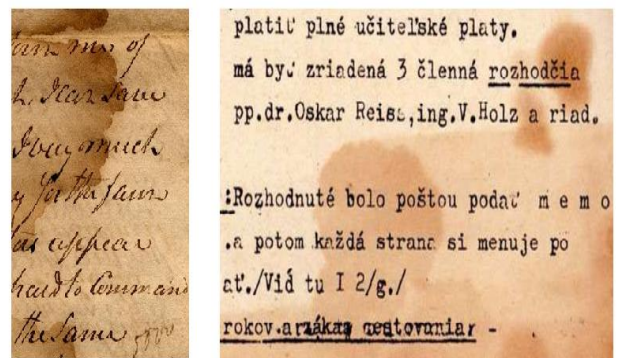 of
h. Dear Save
very much
y for the same
as appear
hard to Command
the Same
platiť plné učiteľské platy.
má byť zriadená 3 členná rozhodčia
pp.dr.Oskar Reiss,ing.V.Holz a riad.
:Rozhodnuté bolo poštou podať m e m o
.a potom každá strana si menuje po
ať./Viď tu I 2/g./
rokov.a zákaz cestovania -